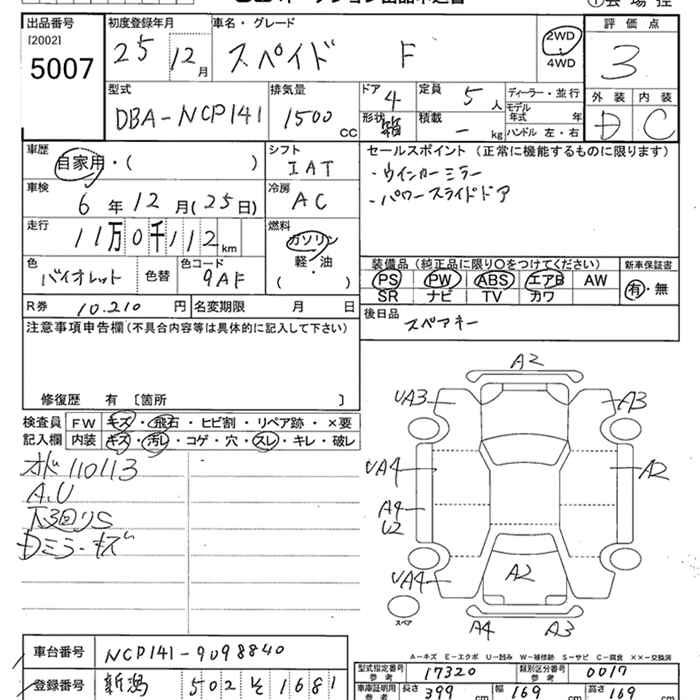 出品番号 初度登録年月 車名・グレード 評価点
[2002]
5007 25 12月 スペイド F 2WD 3
4WD
型式 排気量 ドア 定員 ディーラー・並行 外装 内装
DBA-NCP141 1500 CC 4 5人 モデル年式 年 D C
形状 箱 積載 - kg ハンドル 左・右
車歴 シフト セールスポイント(正常に機能するものに限ります)
自家用・( ) IAT ・ウインカーミラー
車検 冷房 ・パワースライドドア
6年12月(25日) AC
走行 燃料
11万0千112km ガソリン
軽・油
( )
色 色替 色コード 装備品(純正品に限り○をつけてください) 新車保証書
バイオレット 9AF PS PW ABS エアB AW 有・無
SR ナビ TV カワ
R券 10.210円 名変期限 月 日 後日品
スペアキー
注意事項申告欄(不具合内容等は具体的に記入して下さい)
修復歴 有 [箇所 ]
検査員 FW キズ・飛石・ヒビ割・リペア跡・×要
記入欄 内装 キズ・汚レ・コゲ・穴・スレ・キレ・破レ
オド110113
A.U
下回りS
Dミラーキズ
A2
UA3 A3
UA4 A2
A4
U2
UA4 A2
スペア
A4 A3
A-キズ E-エクボ U-凹み W-補修跡 S-サビ C-腐食 XX-交換済
車台番号 NCP141-9098840
型式指定番号 参考 17320 類別区分番号 参考 0017
登録番号 新潟 502 1681
車庫証明用 参考 長さ 399cm 幅 169cm 高さ 169cm